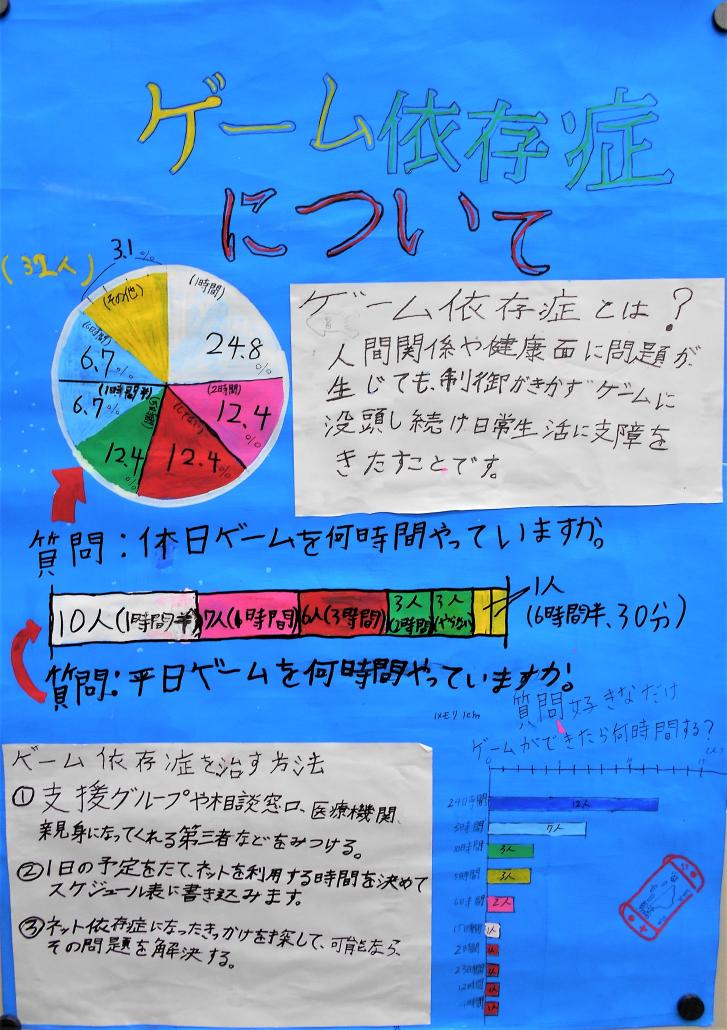 ゲーム依存症
について
(32人)
3.1%
(その他)
(1時間)
24.8%
6.7%
(2時間)
12.4%
6.7%
(1時間半)
12.4%
12.4%
ゲーム依存症とは?
人間関係や健康面に問題が
生じても、制御がきかずゲームに
没頭し続け日常生活に支障を
きたすことです。
質問:休日ゲームを何時間やっていますか。
10人(1時間半)
7人(1時間)
6人(3時間)
3人
3人
1人
(6時間半、30分)
質問:平日ゲームを何時間やっていますか。
1メモリ1cm
質問好きなだけ
ゲームができたら何時間する?
(人)
ゲーム依存症を治す方法
①支援グループや相談窓口、医療機関、
親身になってくれる第三者などをみつける。
②1日の予定をたて、ネットを利用する時間を決めて
スケジュール表に書き込みます。
③ネット依存症になったきっかけを探して、可能なら、
その問題を解決する。
0
24時間
12人
7人
10時間
3人
5時間
3人
2人
1人
2時間
1人
23時間
1人
12時間
1人
1人